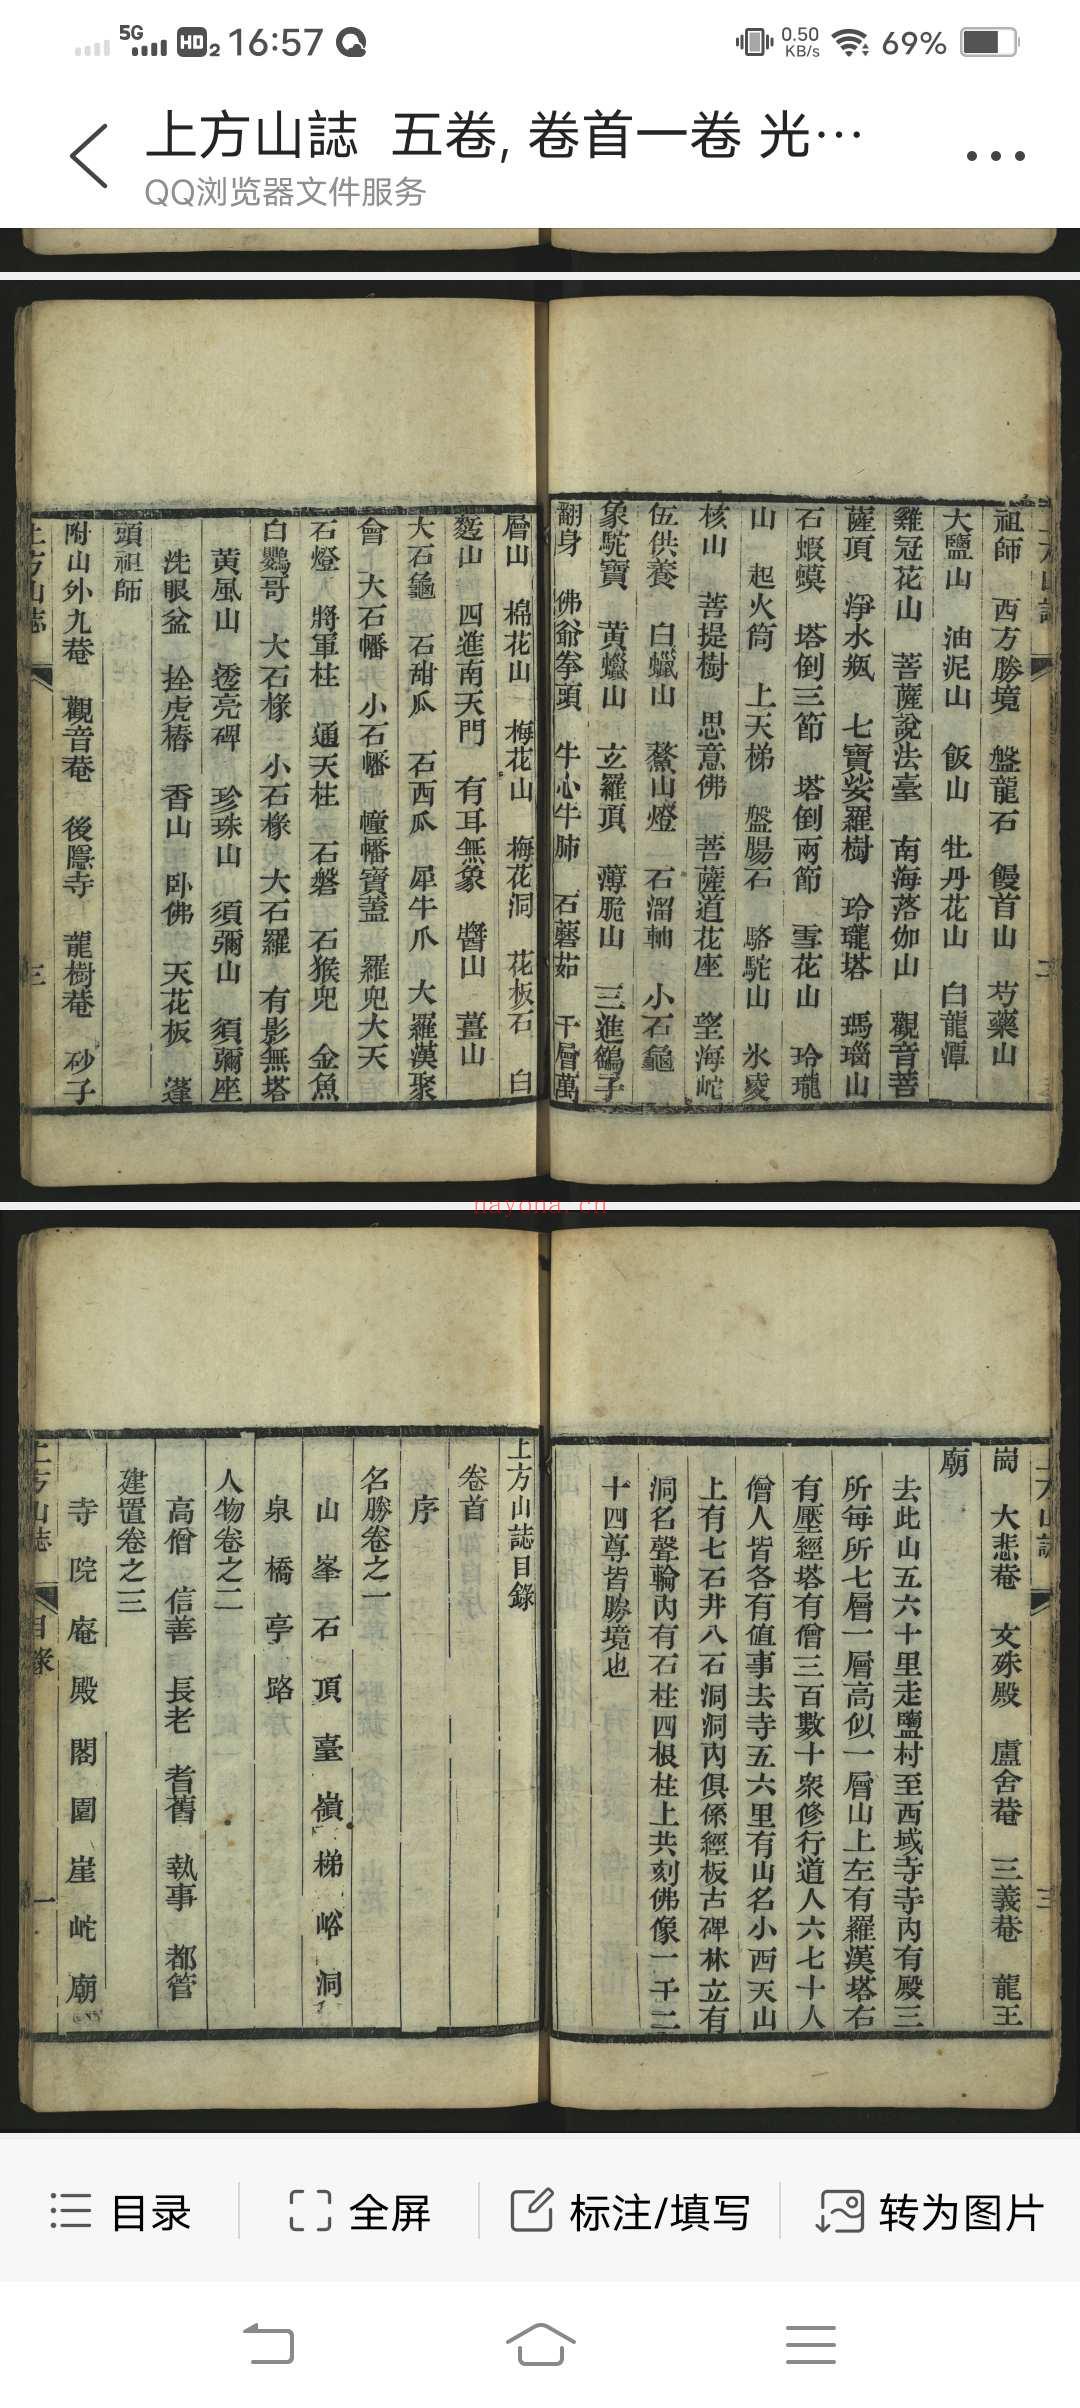 5G HD 2 16:57
0.50 KB/s 69%
上方山誌 五卷, 卷首一卷 光…
QQ浏览器文件服务
祖師 西方勝境 盤龍石 饅首山 芍藥山
大鹽山 油泥山 飯山 牡丹花山 白龍潭
雞冠花山 菩薩說法臺 南海落伽山 觀音菩
薩頂 淨水瓶 七寶娑羅樹 玲瓏塔 瑪瑙山
石蝦蟆 塔倒三節 塔倒兩節 雪花山 玲瓏
山 起火筒 上天梯 盤腸石 駱駝山 氷凌
核山 菩提樹 思意佛 菩薩道花座 望海岮
伍供養 白蠟山 鰲山燈 石溜軸 小石龜
象駝寶 黃蠟山 玄羅頂 薄脆山 三進鷂子
翻身 佛爺拳頭 牛心牛肺 石蘑茹 千層萬
層山 棉花山 梅花山 梅花洞 花板石 白
䴰山 四進南天門 有耳無象 醬山 薑山
大石龜 石甜瓜 石西瓜 犀牛爪 大羅漢聚
會 大石幡 小石幡 幢幡寶蓋 羅兜大天
石燈 將軍柱 通天柱 石磐 石猴兜 金魚
白鸚哥 大石椽 小石椽 大石羅 有影無塔
黃風山 透亮碑 珍珠山 須彌山 須彌座
洗眼盆 拴虎樁 香山 卧佛 天花板 蓬
頭祖師
附山外九菴 觀音菴 後隱寺 龍樹菴 砂子
上方山誌 三
nayona.cn
崗 大悲菴 文殊殿 盧舍菴 三義菴 龍王
廟
去此山五六十里走鹽村至西域寺寺內有殿三
所每所七層一層高似一層山上左有羅漢塔右
有壓經塔有僧三百數十衆修行道人六七十人
僧人皆各有値事去寺五六里有山名小西天山
上有七石井八石洞洞內俱係經板古碑林立有
洞名聲輪內有石柱四根柱上共刻佛像一千二
十四尊皆勝境也
上方山誌目錄
卷首
序
名勝卷之一
山 峯 石 頂 臺 嶺 梯 峪 洞
泉 橋 亭 路
人物卷之二
高僧 信善 長老 耆舊 執事 都管
建置卷之三
寺 院 庵 殿 閣 園 崖 岮 廟
上方山誌 目錄 一
目录 全屏 标注/填写 转为图片